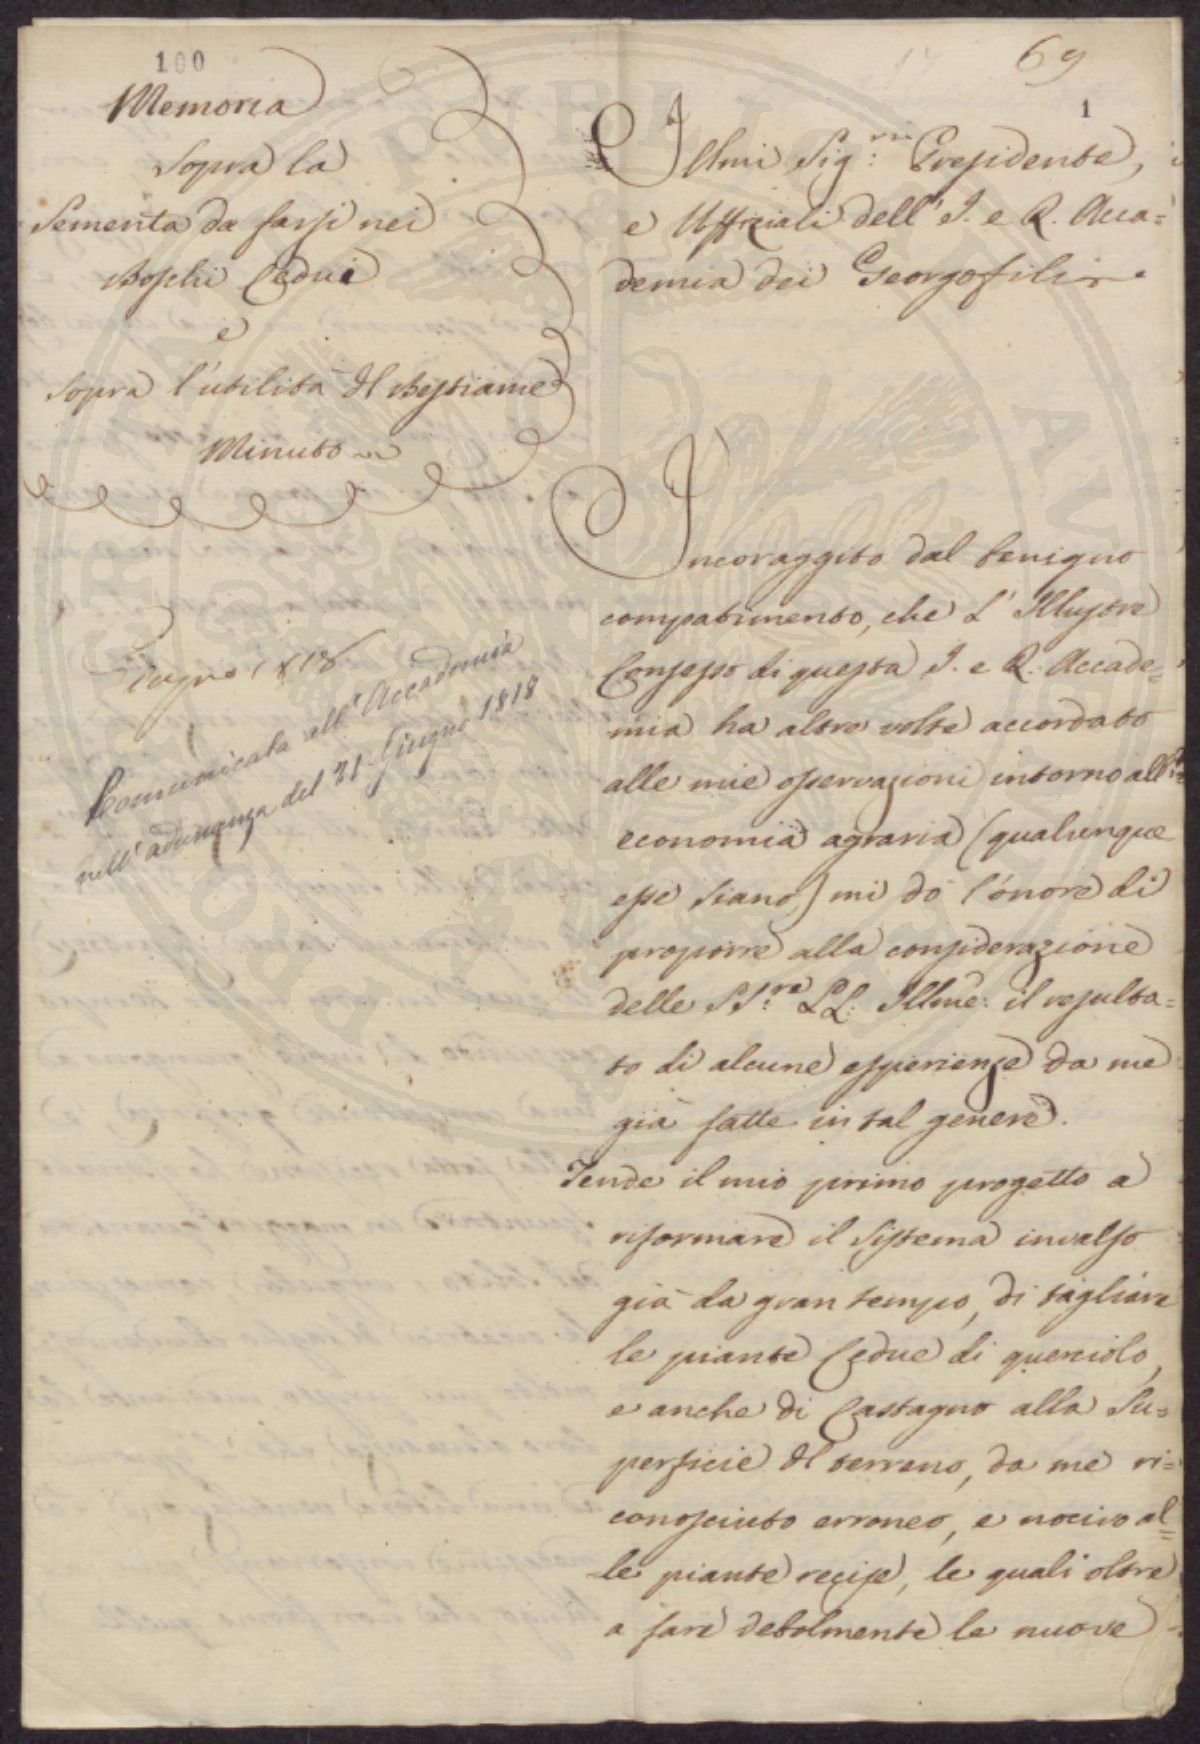 100
Memoria
Sopra la
Sementa da farsi nei
Boschi Cedui
e
Sopra l'utilità del Bestiame
Minuto
Giugno 1818
Comunicata all' Accademia
nell' adunanza del 21 Giugno 1818
69
1
Illmi Sig:ri Presidente,
e Uffiziali dell' I. e R. Acca=
demia dei Georgofili
Incoraggito dal benigno
compatimento, che L' Illustre
Consesso di questa I. e R. Accade=
mia ha altre volte accordato
alle mie osservazioni intorno all'
economia agraria (qualunque
esse siano,) mi dò l'onore di
proporre alla considerazione
delle SS:rie LL: Illme: il resulta=
to di alcune esperienze da me
già fatte in tal genere.
Tende il mio primo progetto a
riformare il Sistema invalso
già da gran tempo, di tagliare
le piante Cedue di querciolo,
e anche di Castagno alla Su=
perficie del terreno, da me ri=
conosciuto erroneo, e nocivo al=
le piante recise, le quali oltre
a fare debolmente le nuove